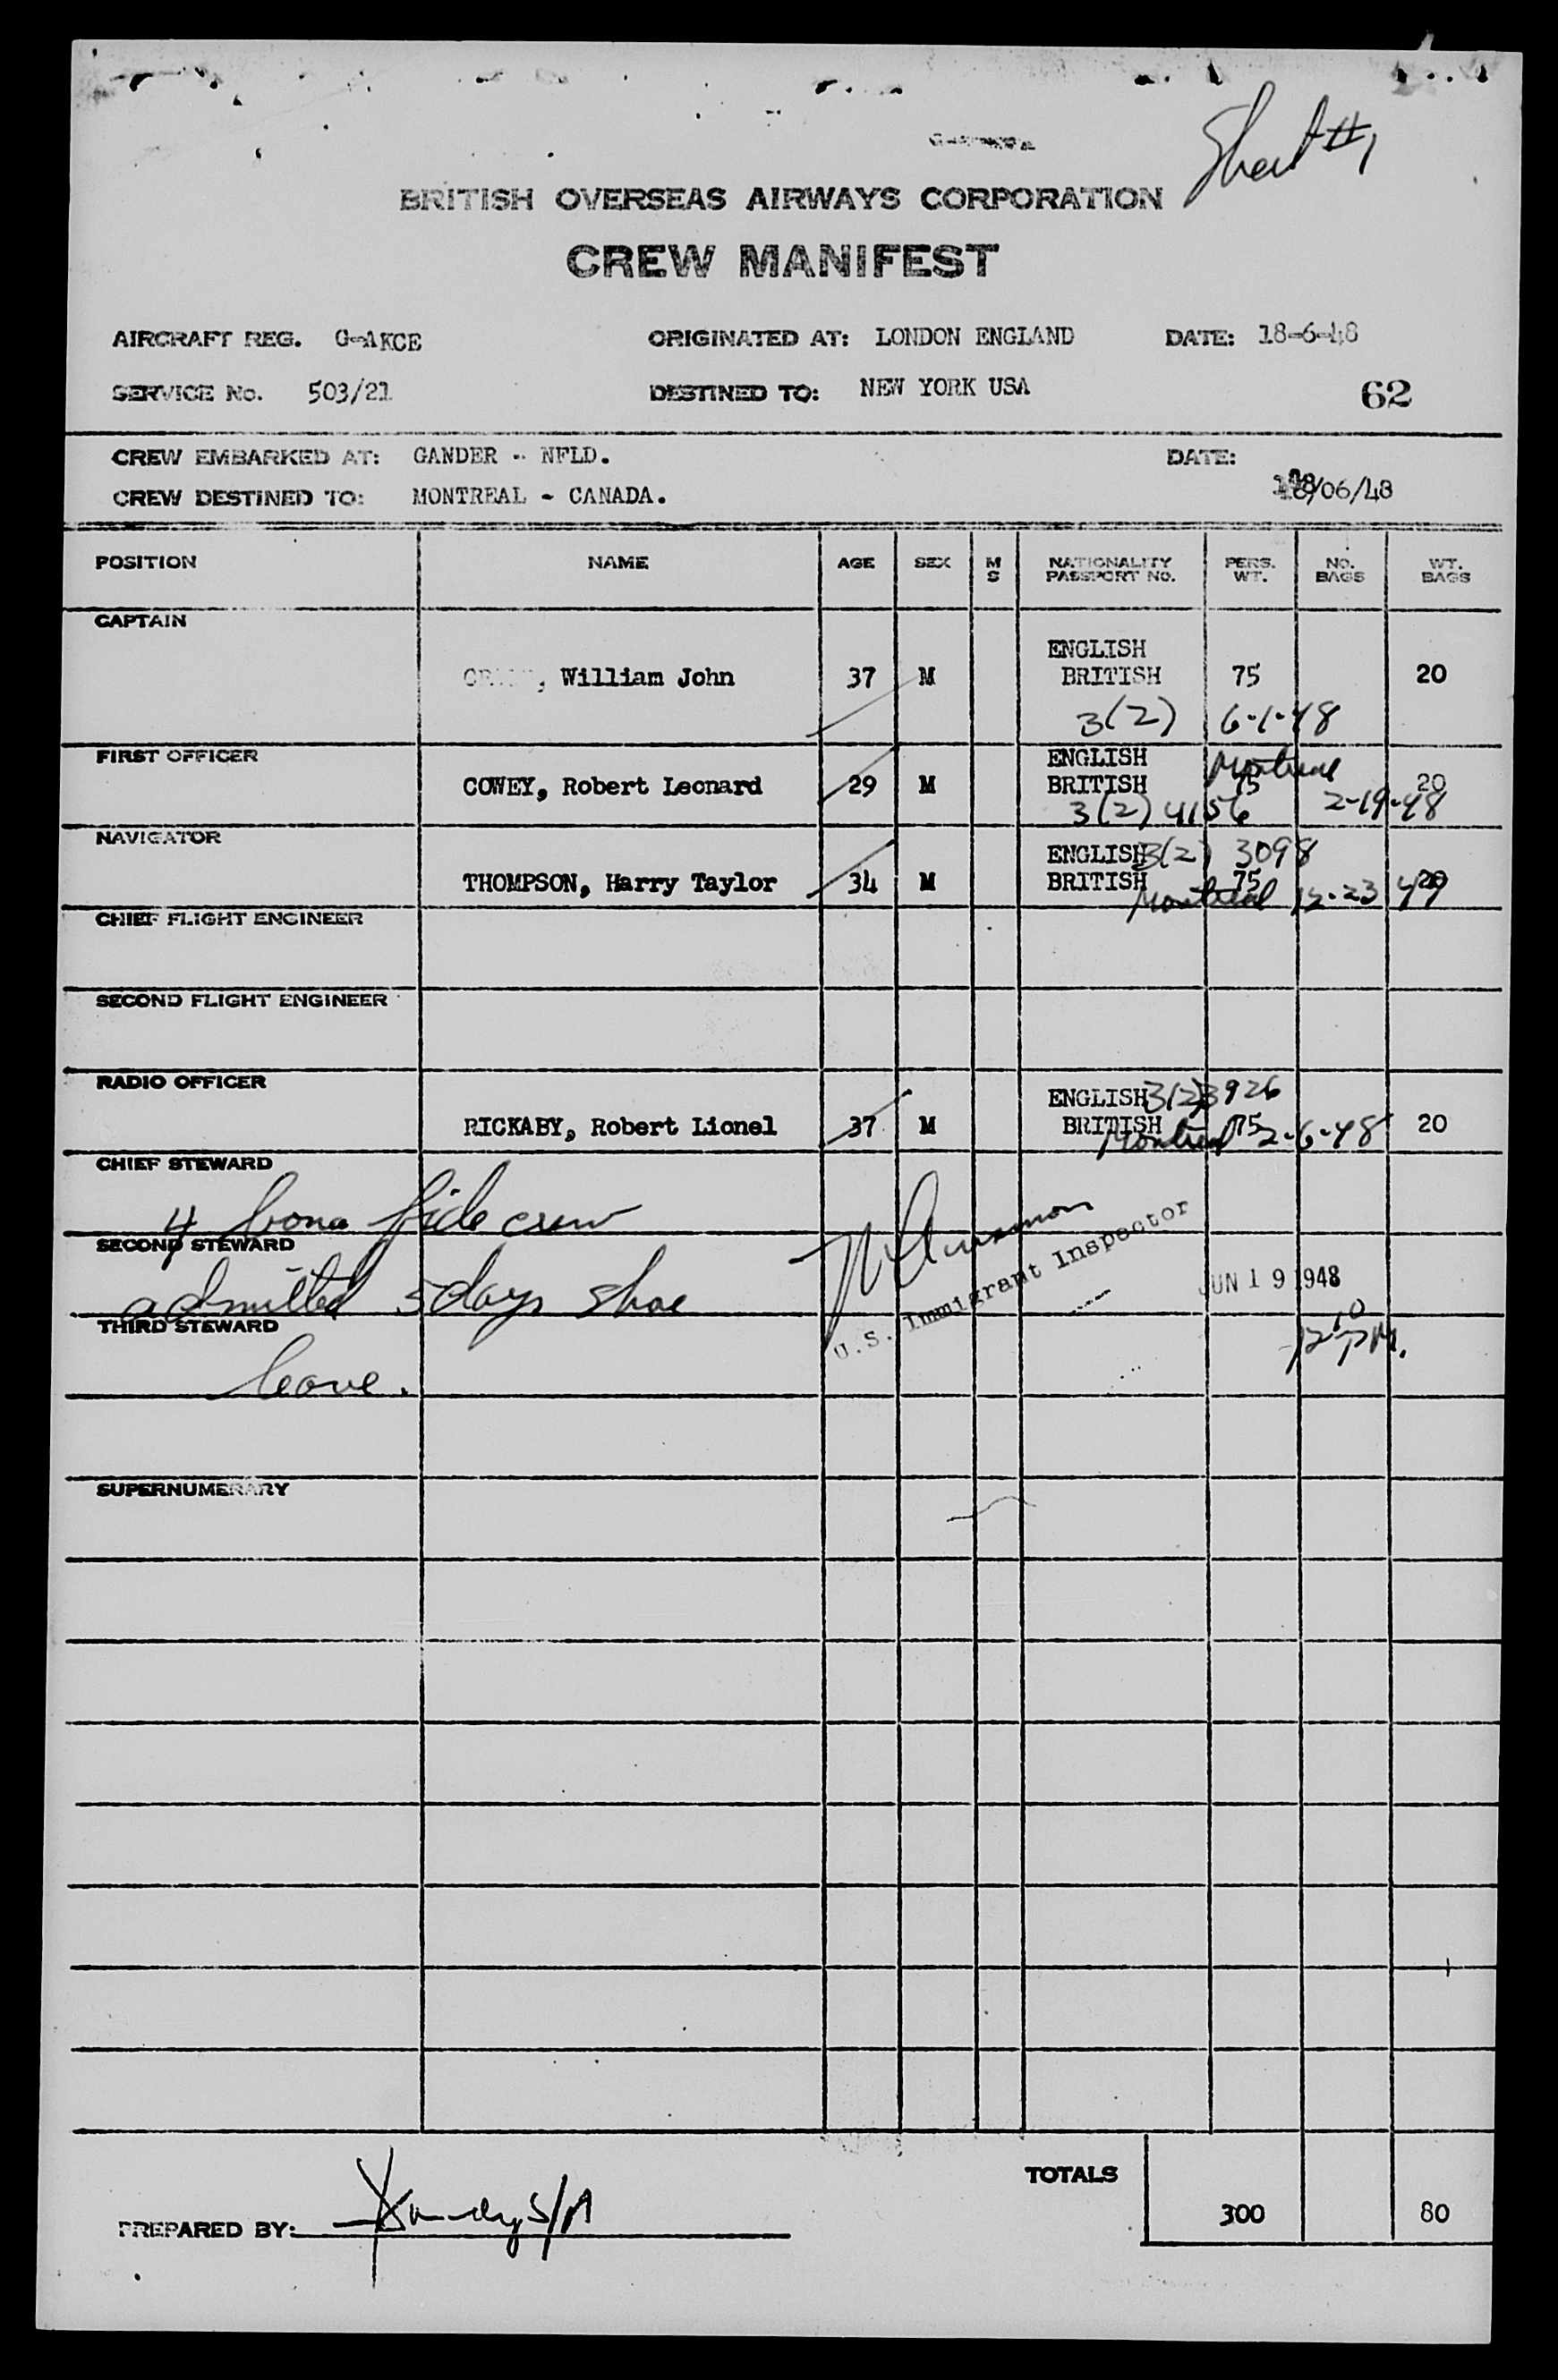 Sheet #1
BRITISH OVERSEAS AIRWAYS CORPORATION
CREW MANIFEST
AIRCRAFT REG. G-AKCE ORIGINATED AT: LONDON ENGLAND DATE: 18-6-48
SERVICE No. 503/21 DESTINED TO: NEW YORK USA 62
CREW EMBARKED AT: GANDER - NFLD. DATE:
CREW DESTINED TO: MONTREAL - CANADA. /06/48
POSITION NAME AGE SEX M S NATIONALITY PASSPORT NO. PERS. WT. NO. BAGS WT. BAGS
CAPTAIN
ENGLISH
, William John 37 M BRITISH 75 20
3(2) 6-1-48
FIRST OFFICER ENGLISH Montreal
COWEY, Robert Leonard 29 M BRITISH 75 20
3(2) 4156 2-19-48
NAVIGATOR
ENGLISH 3(2) 3098
THOMPSON, Harry Taylor 34 M BRITISH 75 20
Montreal 12-23 47
CHIEF FLIGHT ENGINEER
SECOND FLIGHT ENGINEER
RADIO OFFICER
ENGLISH 3(2) 3926
RICKABY, Robert Lionel 37 M BRITISH 75 20
Montreal 2-6-48
CHIEF STEWARD
4 bona fide crew
SECOND STEWARD
admitted 5 days shoe
U.S. Immigrant Inspector
JUN 19 1948
THIRD STEWARD
12 10 PM.
leave.
SUPERNUMERARY
TOTALS
300 80
PREPARED BY: